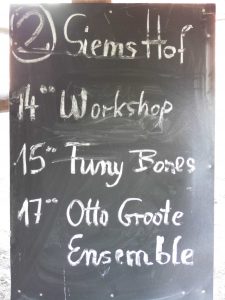 2 Siems Hof
14°° Workshop
15°° Funy Bones
17°° Otto Groote
Ensemble